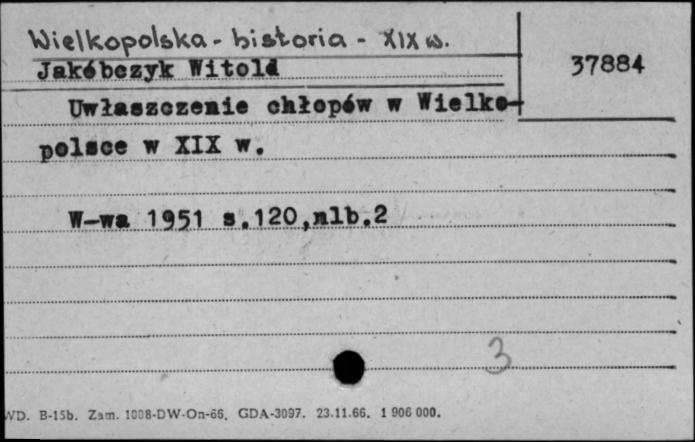 Wielkopolska - historia - XIX w.
Jakóbczyk Witold
37884
Uwłaszczenie chłopów w Wielko-
polsce w XIX w.
W-wa 1951 s.120,nlb.2
3
WD. B-15b. Zam. 1008-DW-On-66. GDA-3097. 23.11.66. 1 906 000.